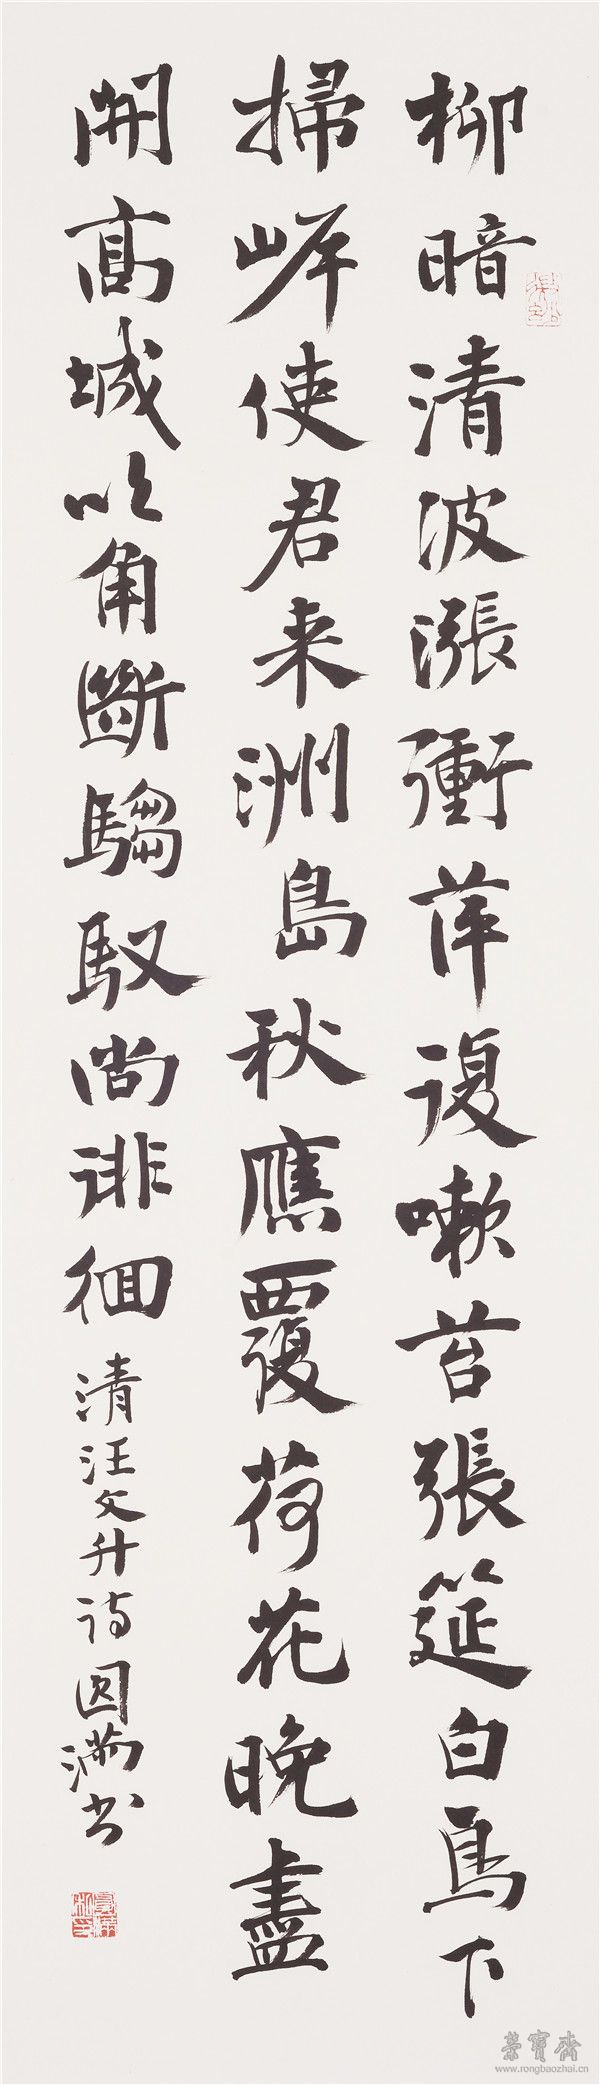 柳暗清波漲衝萍復嗽苔張筵白鳥下
掃岸使君来洲島秋應覆荷花晚盡
開高城吹角斷騶馭尚徘徊
清汪文升诗圆满书
榮寶齋
www.rongbaozhai.cn